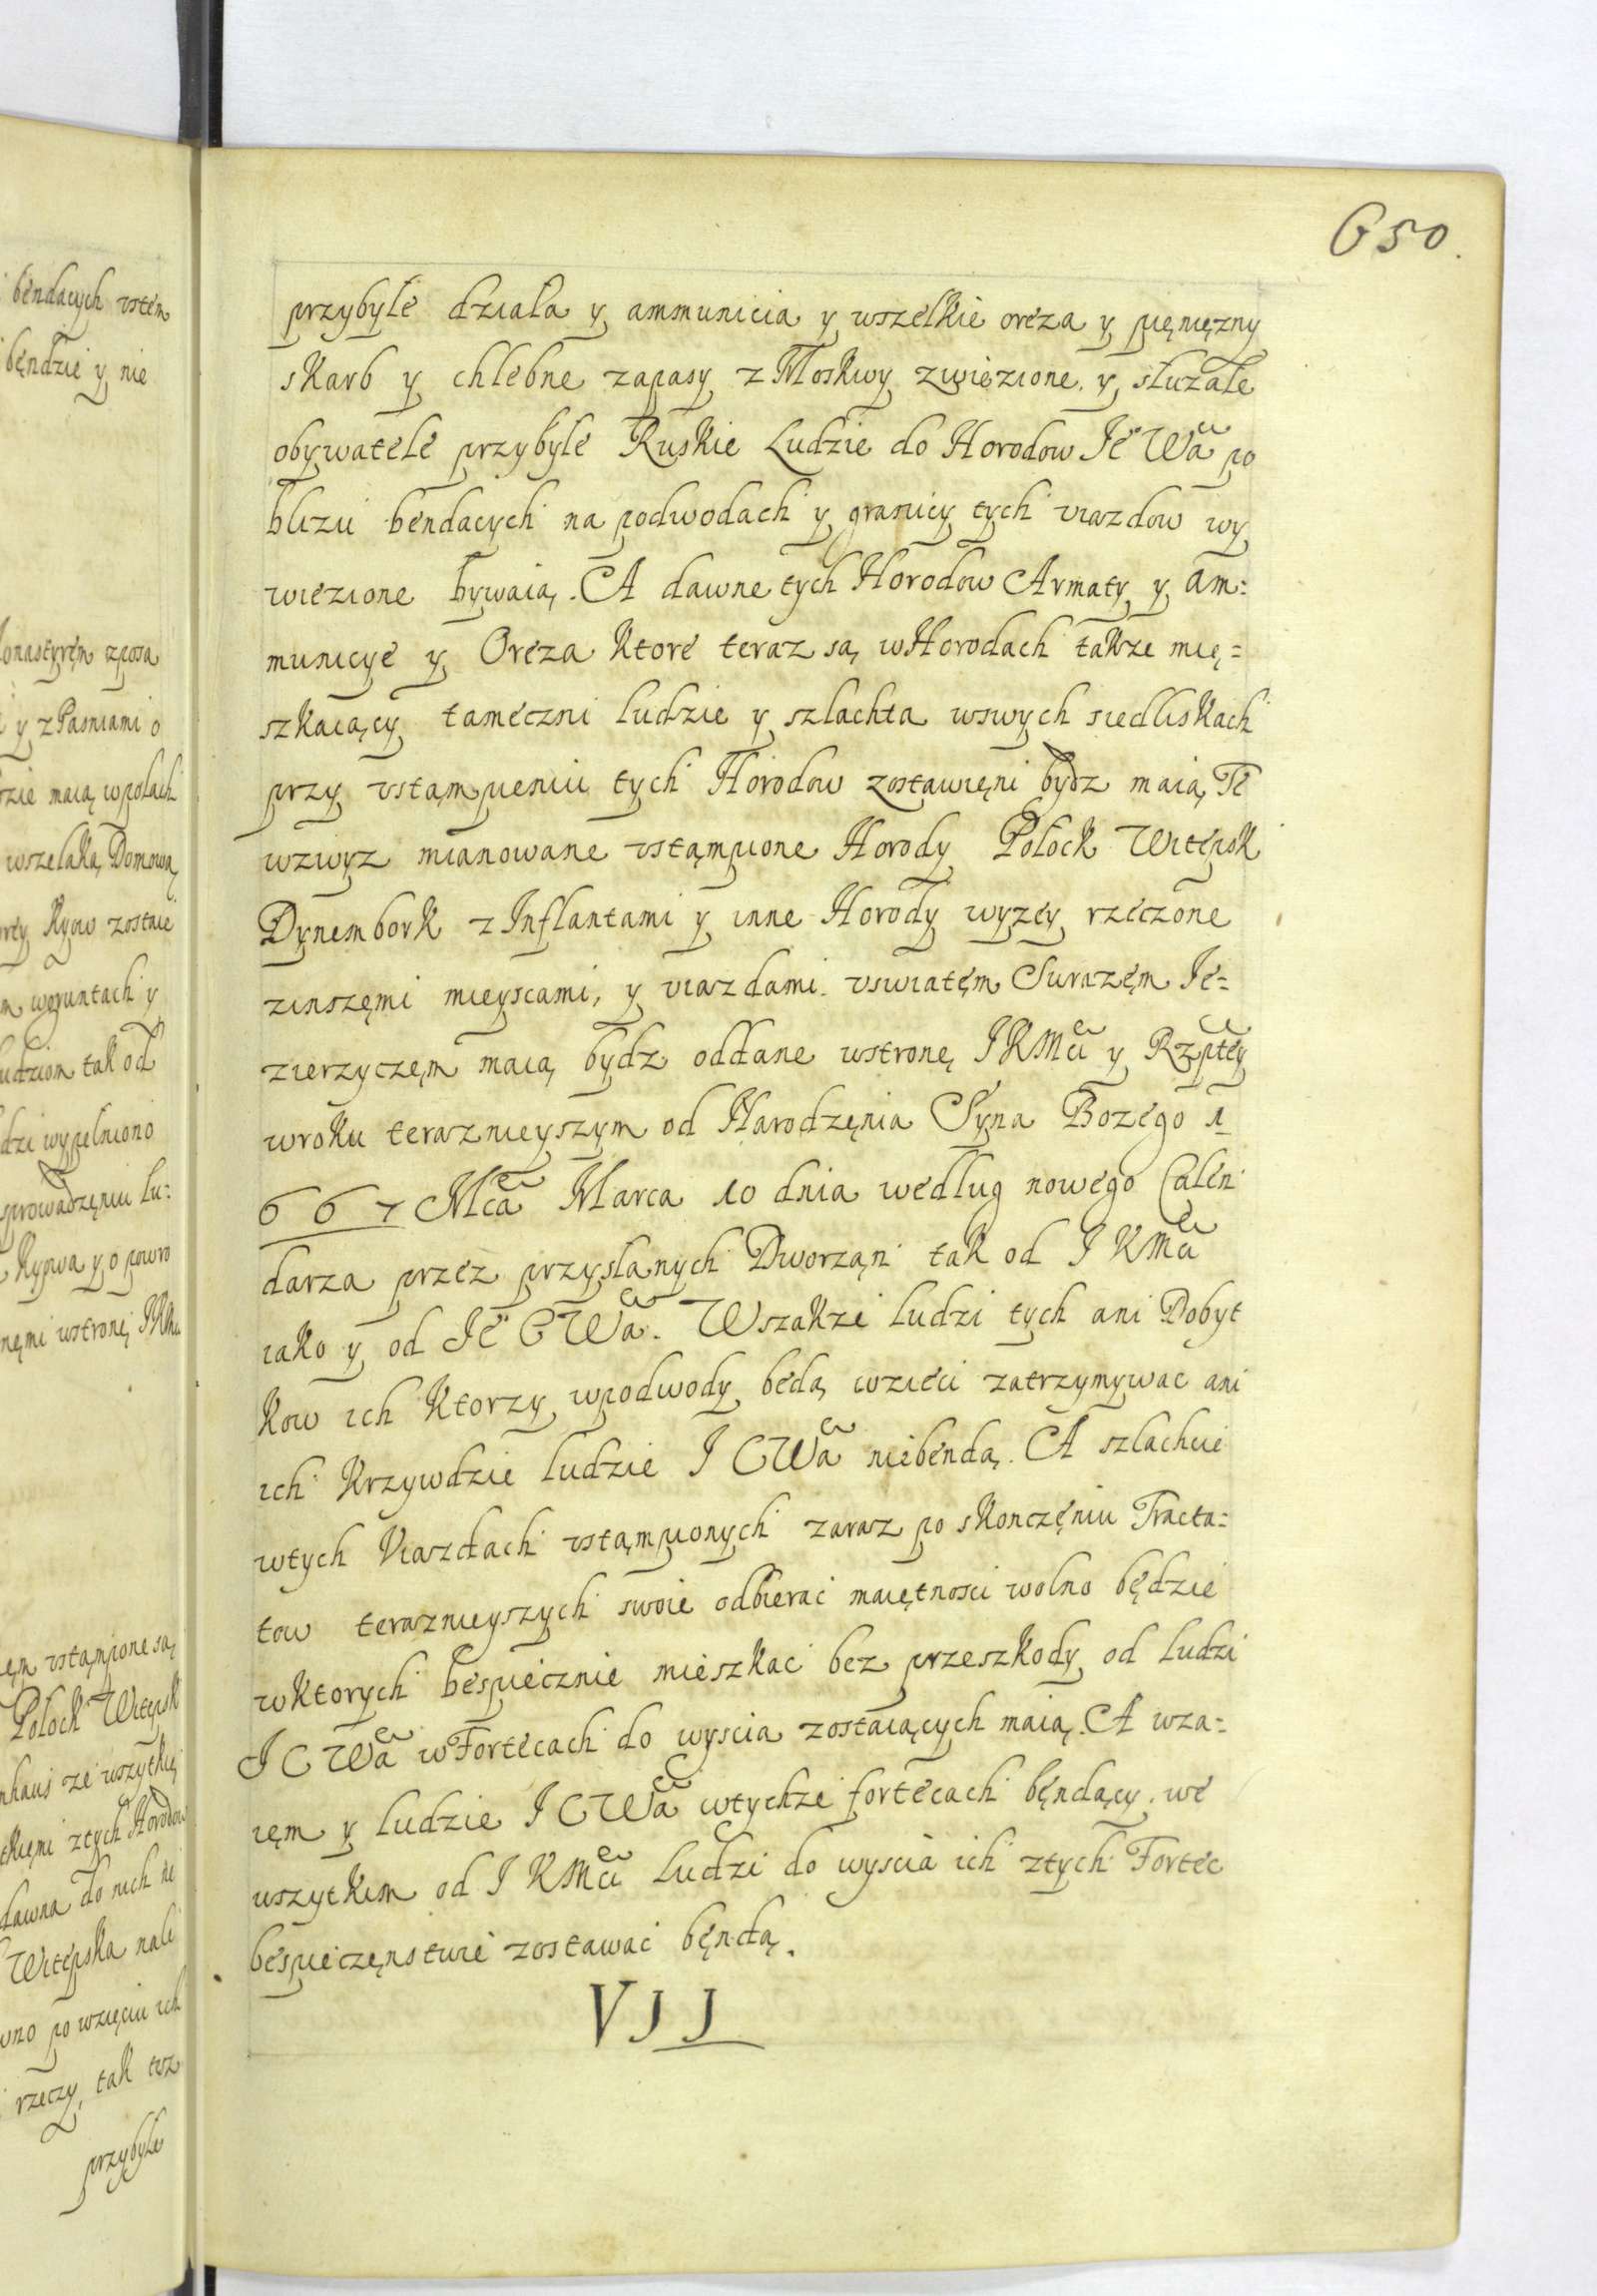 650.
przybyłe działa y ammunicia y wszelkie oręza y pięnięzny
skarb y chlebne zapasy z Moskwy zwiezione y słuzałe
obywatele przybyłe Ruskie Ludzie do Horodow Ie° Wa po
blizu bendacych na podwodach y granicy tych viazdow wy
wiezione bywaią. A dawne tych Horodow Armaty y am:
municye y Oręza ktore teraz są wHorodach takze mię=
szkaiący tameczni ludzie y szlachta wswych siedliskach
przy vstąmpieniu tych Horodow zostawięni bydz maią, Te
wzwyz mianowane vstąmpione Horody Połock Witepsk
Dynembork z Inflantami y inne Horody wyzey rzeczone
zinszęmi mieyscami, y viazdami vswiatęm Surazęm Ie=
zierzyczęm maią bydz oddane wstronę IKMci y Rzptey
wroku teraznieyszym od Narodzęnia Syna Bozego 1
667 Mca Marca 10 dnia według nowego Calen
darza przez przysłanych Dworzan tak od IKMci
iako y od Ie° C Wa. Wszakze ludzi tych ani Dobyt
kow ich ktorzy wpodwody będą wzieci zatrzymywac ani
ich krzywdzie ludzie I C Wa niebendą. A szlachcie
wtych Viazdach vstąmpionych zaraz po skonczęniu Tracta=
tow teraznieyszych swoie odbierac maiętnosci wolno będzie
wktorych bespiecznie mieszkac bez przeszkody od ludzi
I C Wa wFortecach do wyscia zostaiących maią. A wza=
ięm y ludzie I C Wa wtychze fortecach bęndący we
wszytkim od I KMci Ludzi do wyscia ich ztych Fortec
bespieczęnstwie zostawac będą.
VII
bendacych vstem
będzie y nie
y z Pasniami o
maią wpolach
wszelaką Domową
Kyow zostnie
wgruntach y
tak od
wypelniono
Kyowa y o powro
wstronę IKMci
vstąmpione są,
Połock Witepsk
ze wszytkię
ztych Horodow
dawna do nich
Witepska nale
po wzięciu ich
rzeczy, tak
przybyłe